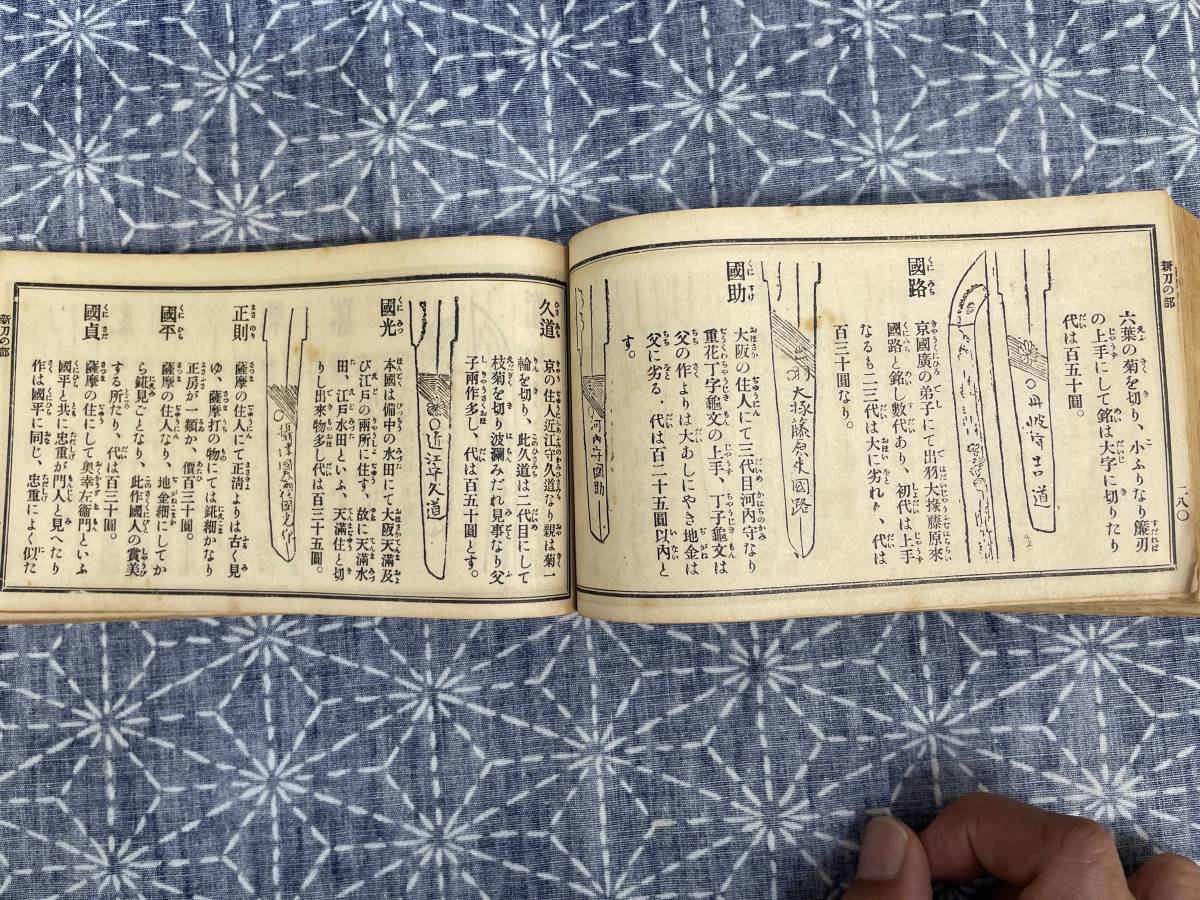 新刀の部
一八〇
六葉の菊を切り、小ふりなり簾刃
の上手にして銘は大字に切りたり
代は百五十圓。
丹波守吉道
國路
京國廣の弟子にて出羽大掾藤原來
國路と銘し數代あり、初代は上手
なるも二三代は大に劣れり、代は
百三十圓なり。
出羽大掾藤原來國路
國助
大阪の住人にて三代目河内守なり
重花丁字龜文の上手、丁子龜文は
父の作よりは大あしにやき地金は
父に劣る、代は百二十五圓以内と
す。
河内守國助
久道
京の住人近江守久道なり親は菊一
輪を切り、此久道は二代目にして
枝菊を切り波瀾みだれ見事なり父
子兩作多し、代は百五十圓とす。
近江守久道
國光
本國は備中の水田にて大阪天滿及
び江戸の兩所に住す、故に天滿水
田、江戸水田といふ、天滿住と切
りし出來物多し代は百三十五圓。
正則
薩摩の住人にて正清よりは古く見
ゆ、薩摩打の物にては鉦細かなり
正房が一類か、價百三十圓。
國平
薩摩の住人なり、地金細にしてか
ら鉦見ごとなり、此作國人の賞美
する所たり、代は百三十圓。
國貞
薩摩の住にして奥幸左衞門といふ
國平と共に忠重が門人と見えたり
作は國平に同じ、忠重によく似た
新刀の部